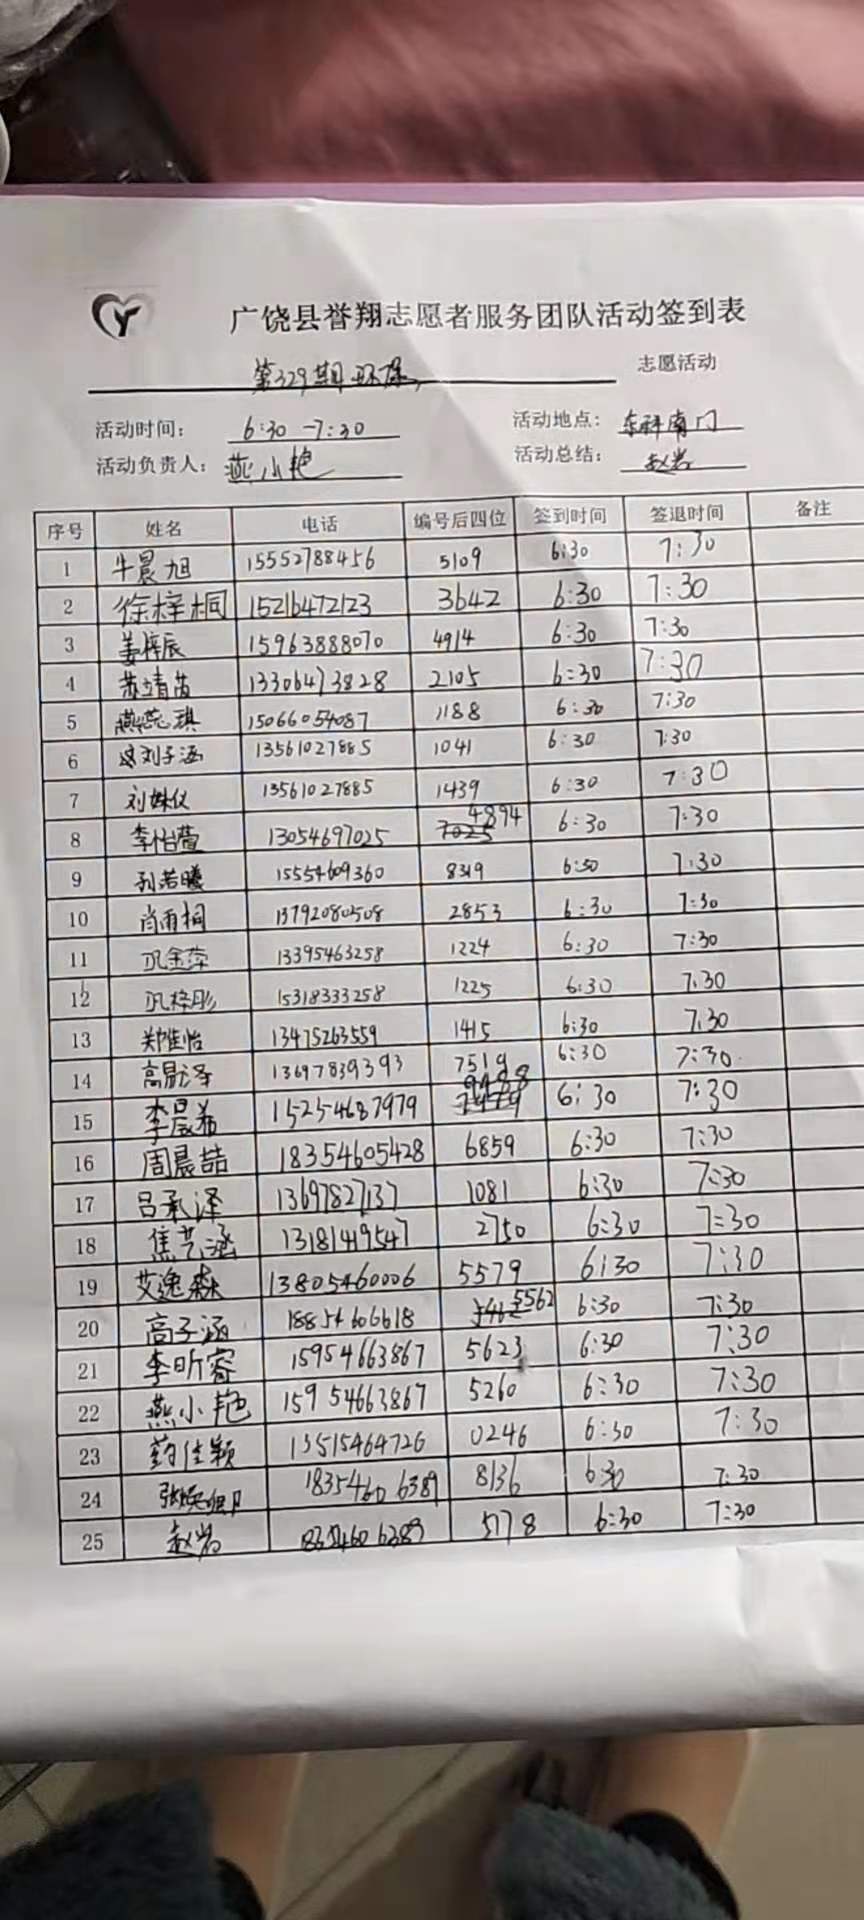 广饶县誉翔志愿者服务团队活动签到表
第329期环保 志愿活动
活动时间： 6:30-7:30 活动地点： 东祥南门
活动负责人： 燕小艳 活动总结： 赵岩
序号 姓名 电话 编号后四位 签到时间 签退时间 备注
1 牛晨旭 15552788456 5109 6:30 7:30
2 徐梓桐 15216472123 3642 6:30 7:30
3 姜梓辰 15963888070 4914 6:30 7:30
4 苏靖茵 13306473828 2105 6:30 7:30
5 燕蕊琪 15066054087 1188 6:30 7:30
6 刘子涵 13561027885 1041 6:30 7:30
7 刘姝仪 13561027885 1439 6:30 7:30
8 李怡萱 13054697025 4894 6:30 7:30
9 孙若曦 15554609360 8319 6:30 7:30
10 肖雨桐 13792080508 2853 6:30 7:30
11 巩金萍 13395463258 1224 6:30 7:30
12 巩梓彤 15318333258 1225 6:30 7:30
13 郑惟怡 13475263559 1415 6:30 7:30
14 高易泽 13697839393 7519 6:30 7:30
15 李晨希 15254687979 9488 6:30 7:30
16 周晨喆 18354605428 6859 6:30 7:30
17 吕承泽 13697827137 1081 6:30 7:30
18 焦艺涵 13181419547 2750 6:30 7:30
19 艾逸森 13805460006 5579 6:30 7:30
20 高子涵 18854606618 5562 6:30 7:30
21 李昕睿 15954663867 5623 6:30 7:30
22 燕小艳 15954663867 5260 6:30 7:30
23 药佳颖 13515464726 0246 6:30 7:30
24 18354606389 8136 6:30 7:30
25 赵岩 18354606389 5178 6:30 7:30